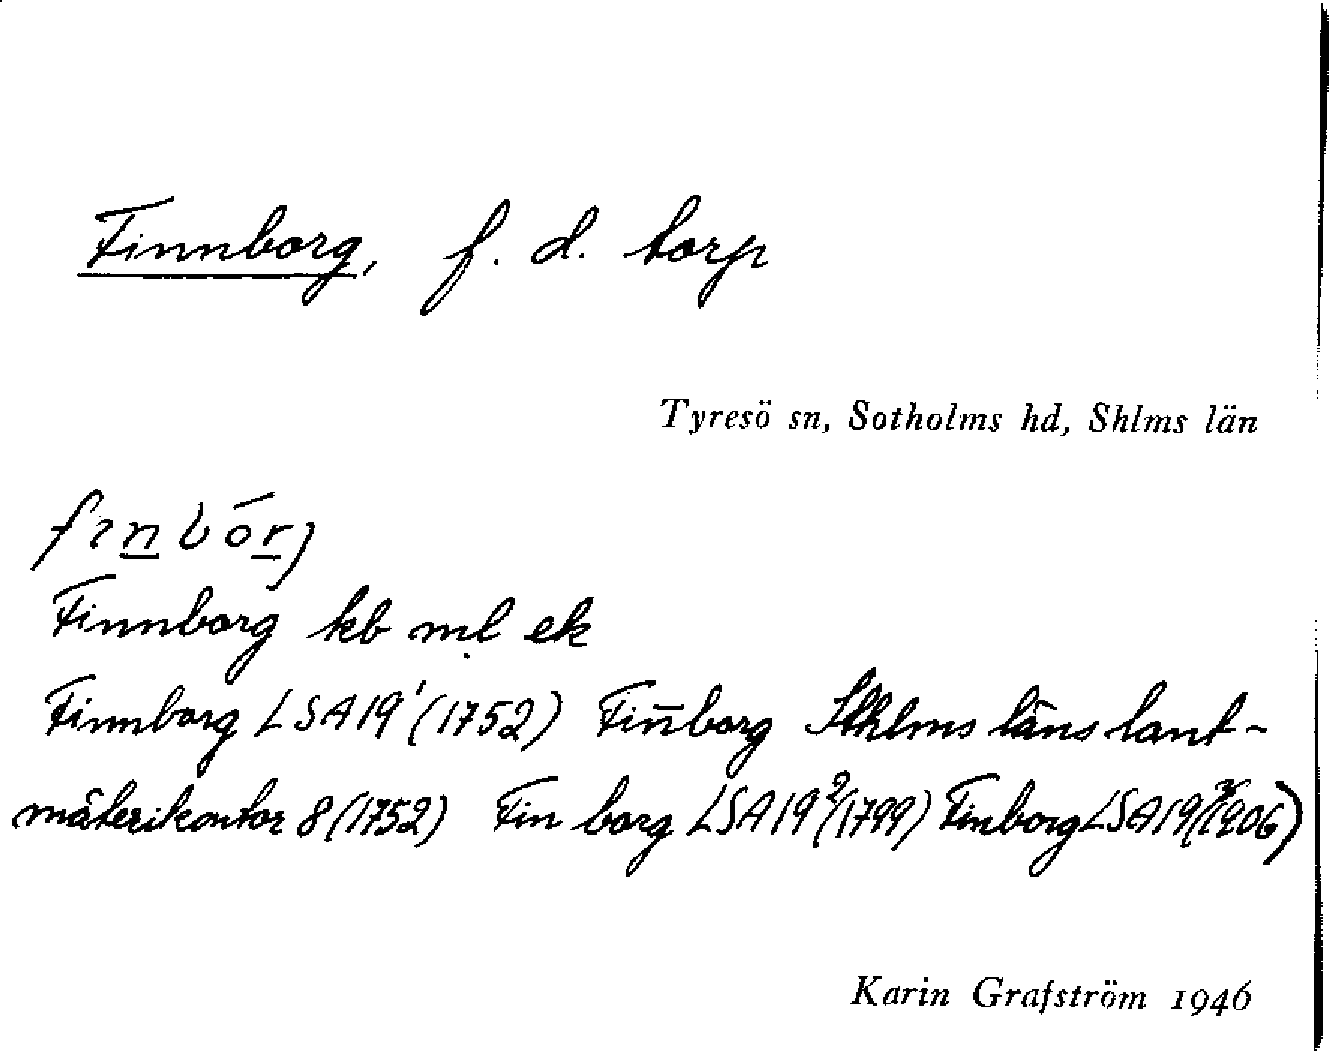 Finnborg, f. d. torp
Tyresö sn, Sotholms hd, Shlms län
fɪn̲bór̲j
Finnborg kb ml ek
Finnborg LSA 19¹ (1752) Fin̄borg Sthlms läns lant-
mäterikontor 8 (1752) Fin borg LSA 19² (1799) Finborg LSA 19³ (1906)
Karin Grafström 1946